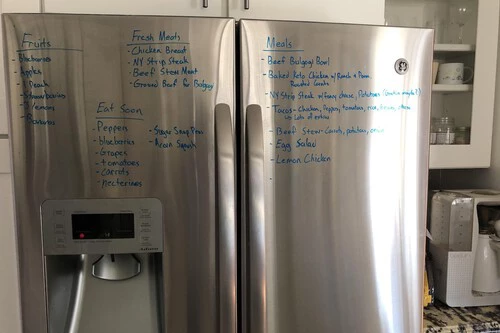 Fruits
- Blueberries
- Apples
- 1 Peach
- Strawberries
- 2 lemons
- Bananas
Fresh Meats
- Chicken Breast
- NY Strip Steak
- Beef Stew Meat
- Ground Beef for Bulgogi
Eat Soon
- Peppers
- blueberries
- Grapes
- tomatoes
- carrots
- Nectarines
- Sugar Snap Peas
- Acorn Squash
Meals
- Beef Bulgogi Bowl
- Baked Keto Chicken w/ Ranch & Parm
Roasted Carrots
- NY Strip Steak w/ Potatoes
- Tacos - Chicken, Pepper, tomatoes, rice,
Lots of options
- Beef Stew - Carrots, potatoes, onion
- Egg Salad
- Lemon Chicken
-